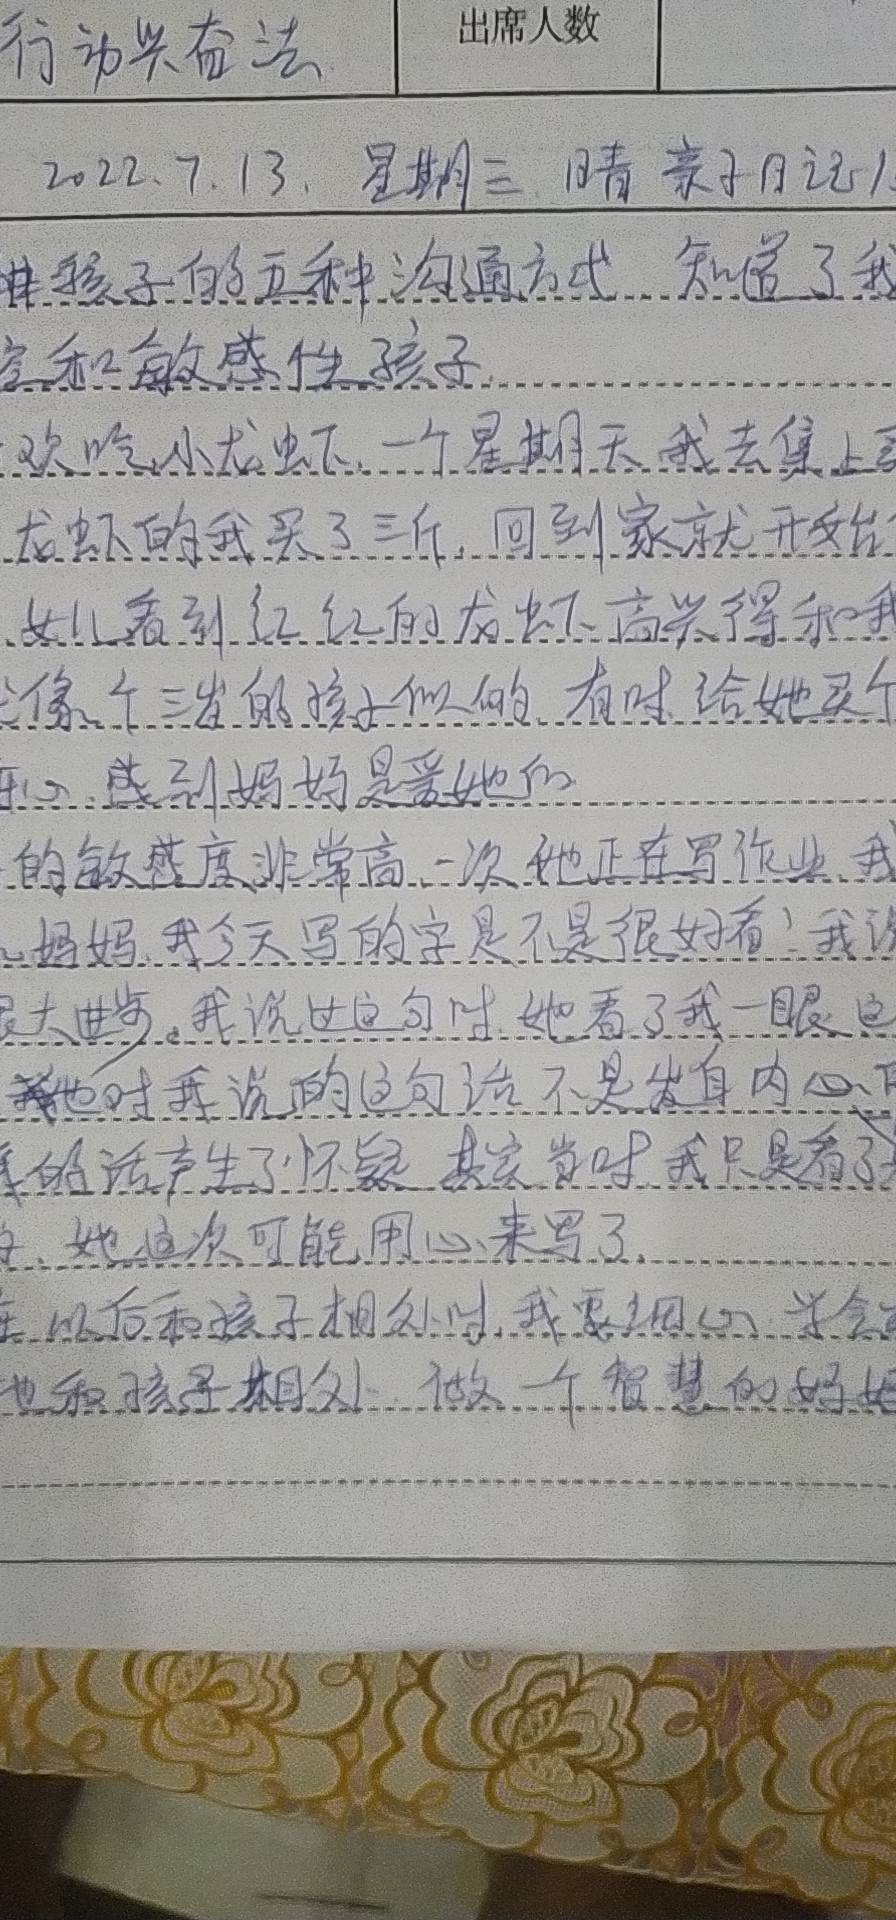 行动兴奋法 出席人数
2022.7.13. 星期三 晴 亲子日记
孩子的五种沟通方式 知道了我
和敏感性孩子.
欢吃小龙虾,一个星期天我去集上
龙虾的我买了三斤,回到家就开始
女儿看到红红的龙虾高兴得和我
像个三岁的孩子似的,有时给她买个
心,感到妈妈是爱她的
的敏感度非常高一次她正在写作业我
妈妈,我今天写的字是不是很好看!我说
大进步。我说这句时她看了我一眼这
她对我说的这句话不是发自内心
的话产生了怀疑 其实当时我只是看了
她这次可能用心来写了.
以后和孩子相处时,我要细心学会
和孩子相处 做一个智慧的妈妈